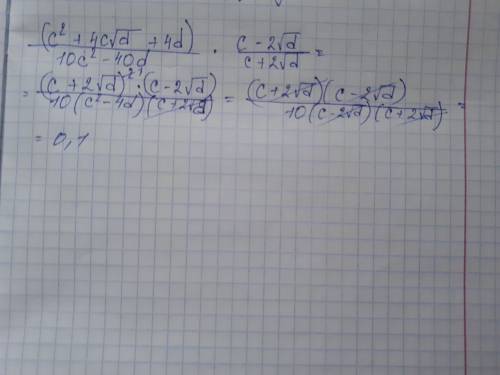 (c² + 4c√d + 4d) / (10c² - 40d) · (c - 2√d) / (c + 2√d) =
= (c + 2√d)²¹ · (c - 2√d) / 10(c² - 4d)(c + 2√d) = (c + 2√d)(c - 2√d) / 10(c - 2√d)(c + 2√d) =
= 0,1